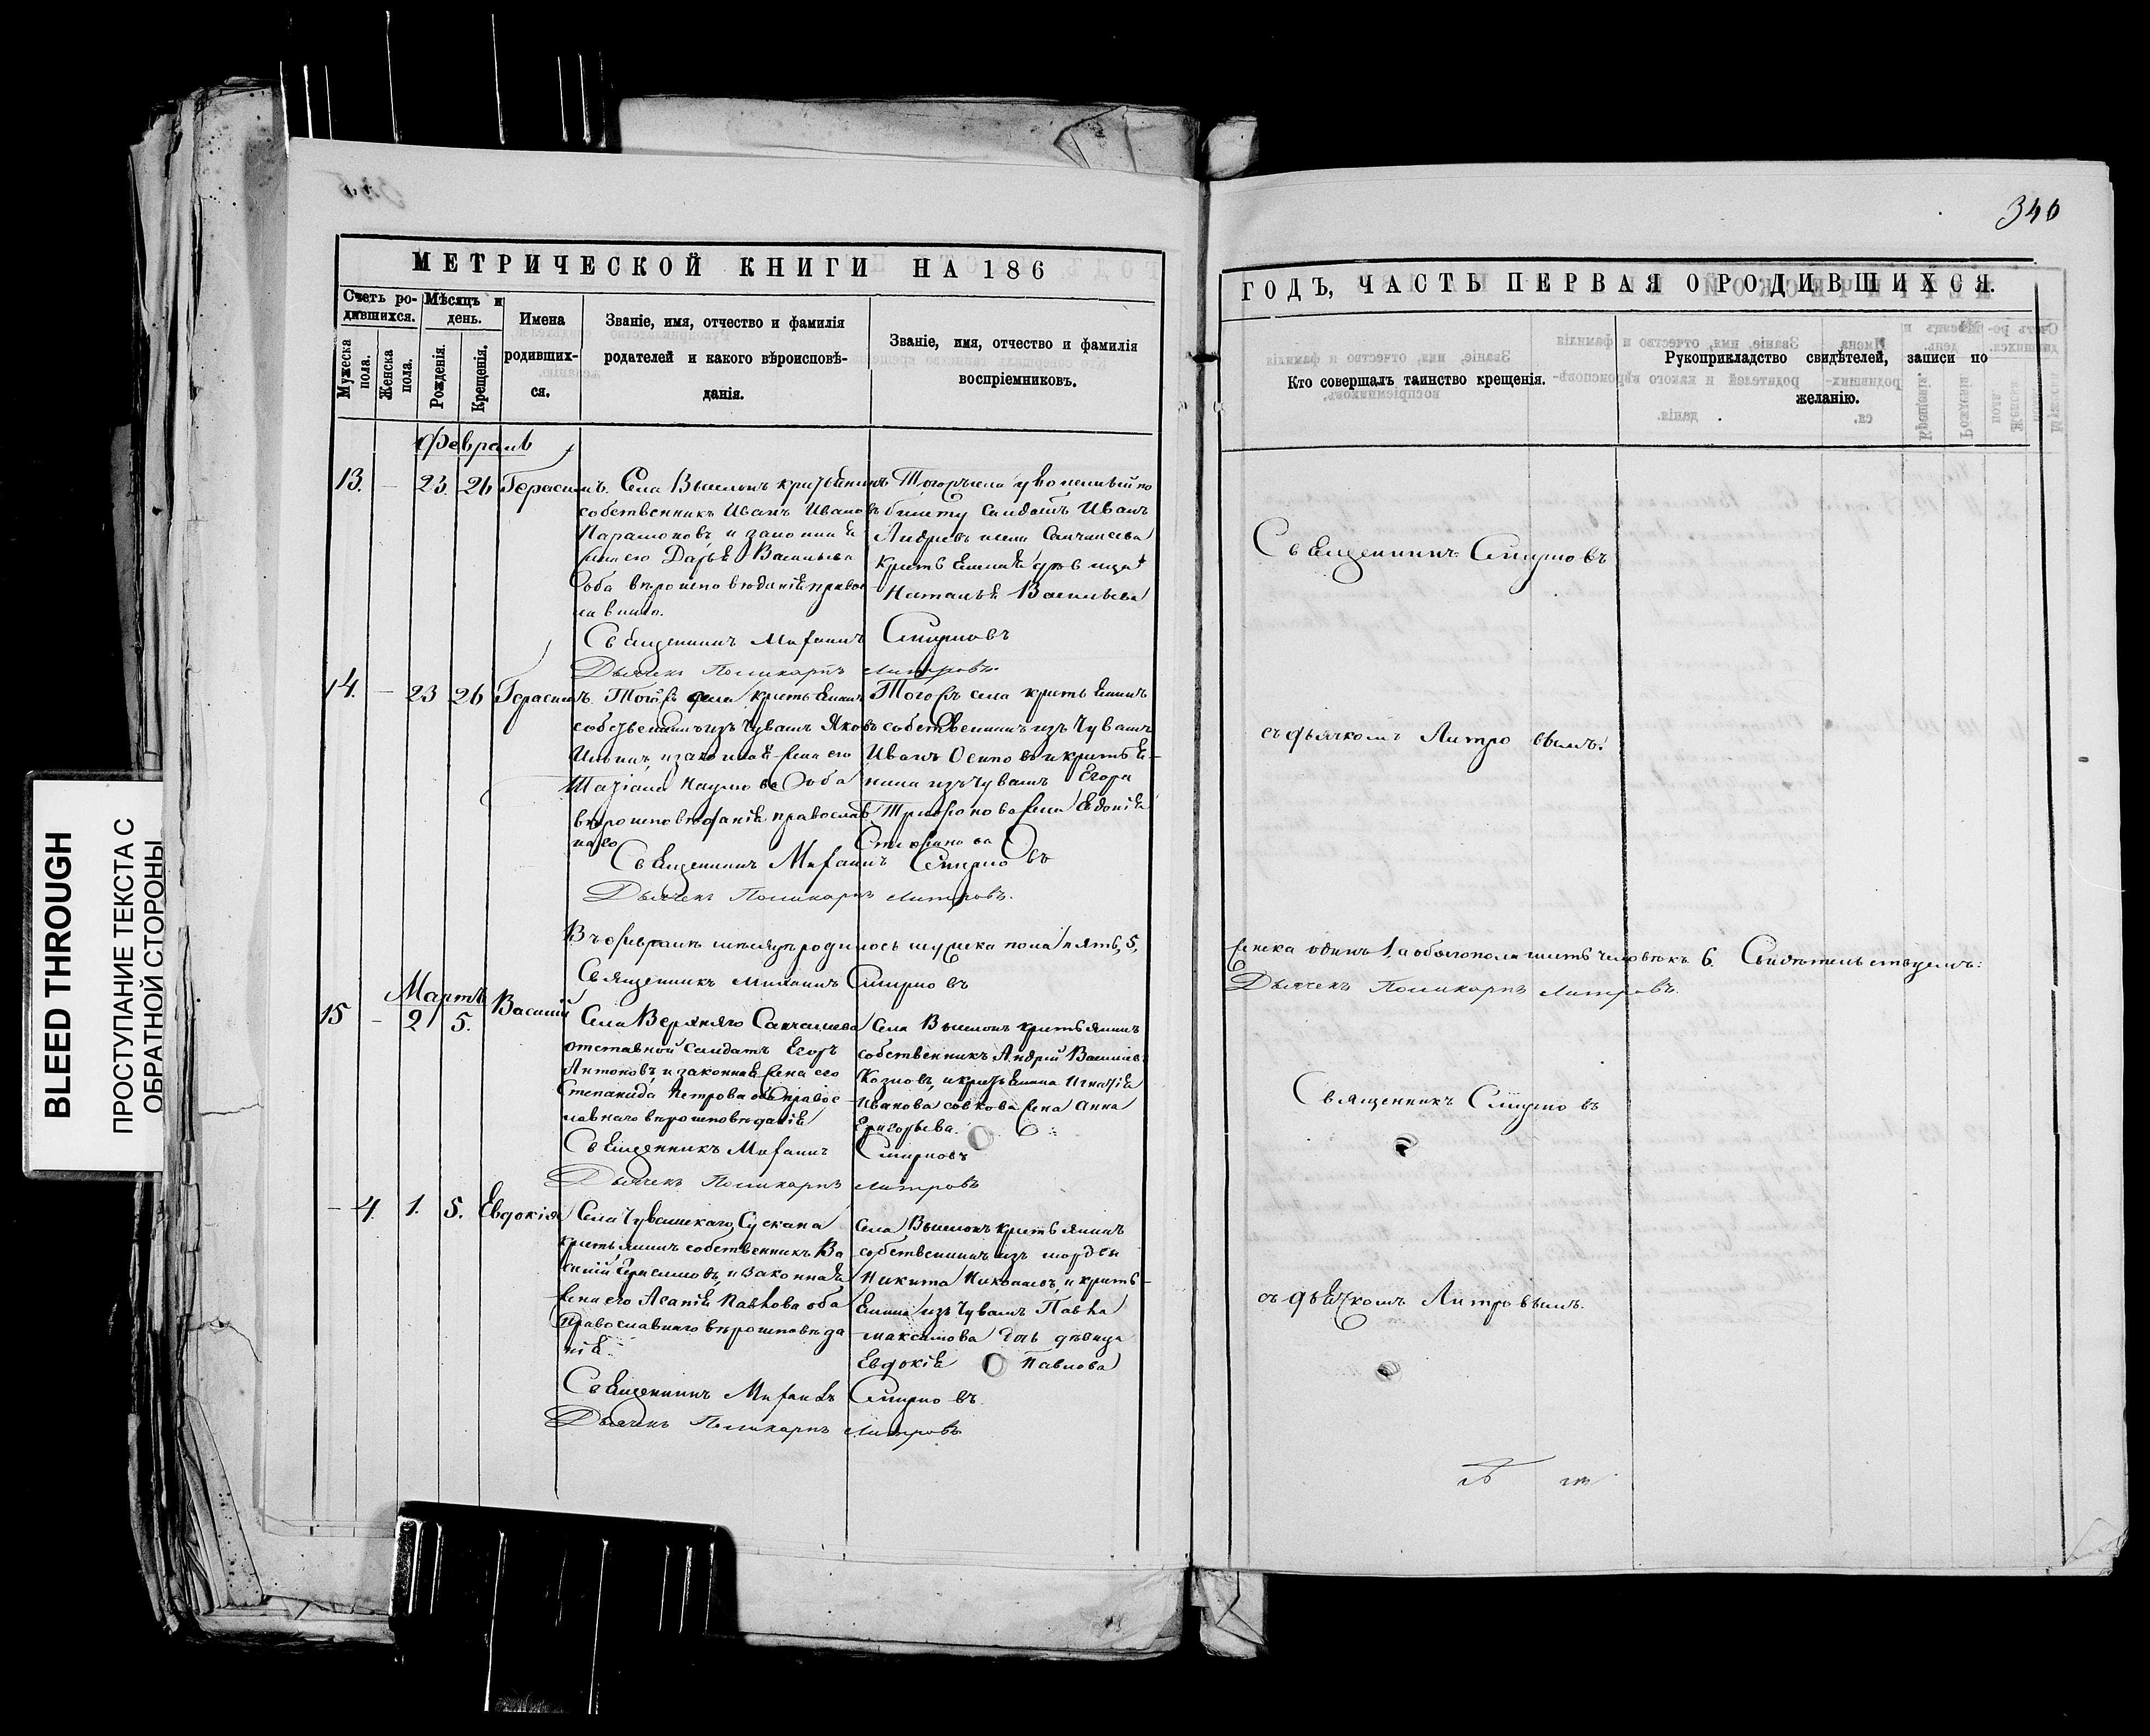 346
МЕТРИЧЕСКОЙ КНИГИ НА 186
ГОДЪ, ЧАСТЬ ПЕРВАЯ О РОДИВШИХСЯ.
Счетъ ро-
дившихся.
Мужеска пола.
Женска пола.
Мѣсяцъ и
день.
Рожденія.
Крещенія.
Имена
родивших-
ся.
Званіе, имя, отчество и фамилія
родителей и какого вѣроисповѣ-
данія.
Званіе, имя, отчество и фамилія
воспріемниковъ.
Кто совершалъ таинство крещенія.
Рукоприкладство свидѣтелей, записи по
желанію.
Февраль
13. – 23. 26 Герасимъ.
Села
собственникъ Иванъ Ивановъ
его Дарья Васильева
оба вѣроисповѣданія правос
лавнаго.
билету солдатъ Иванъ
Наталья Васильева
Священникъ Михаилъ Смирновъ
Дьячекъ Поликарпъ Литровъ.
Священникъ Смирновъ
14. – 23 26 Герасимъ.
Тогожъ села крестьянинъ
собственникъ изъ Чувашъ Яковъ
Ильинъ, и законная жена его
Татіана Наумова Оба
вѣроисповѣданія православ
наго
Тогожъ села крестьянинъ
собственникъ изъ Чувашъ
Иванъ Осиповъ и крестья-
нина изъ Чувашъ Егора
Трифонова жена Евдокія
Священникъ Михаилъ Смирновъ
Дьячекъ Поликарпъ Литровъ.
съ дьячкомъ Литровымъ.
Въ февралѣ мѣсяцѣ родилось мужеска пола пять, 5,
женска одинъ 1, а обоего пола шесть человѣкъ 6. Свидѣтельствуемъ:
Священникъ Михаилъ Смирновъ
Дьячекъ Поликарпъ Литровъ.
Мартъ
15 – 2 5. Василій
Села Верхняго Санчелеева
отставной солдатъ Егоръ
Антоновъ, и законная жена его
Степанида Петрова оба правос
лавнаго вѣроисповѣданія
Села крестьянинъ
собственникъ Андрей Васильев:
Козловъ, и крестьянина Игнатія
Иванова жена Анна
Григорьева.
Священникъ Михаилъ Смирновъ
Дьячекъ Поликарпъ Литровъ
Священникъ Смирновъ
– 4. 1. 5. Евдокія
Села Чувашскаго Сускана
крестьянинъ собственникъ Ва
силій и законная
жена его Агапія Павлова оба
православнаго вѣроисповѣда
нія.
Села крестьянинъ
собственникъ изъ мордвы
Никита Николаевъ, и кресть-
янина изъ Чувашъ Павла
Максимова дочь дѣвица
Евдокія Павлова
Священникъ Михаилъ Смирновъ.
Дьячекъ Поликарпъ Литровъ
съ дьячкомъ Литровымъ.
BLEED THROUGH
ПРОСТУПАНИЕ ТЕКСТА С
ОБРАТНОЙ СТОРОНЫ